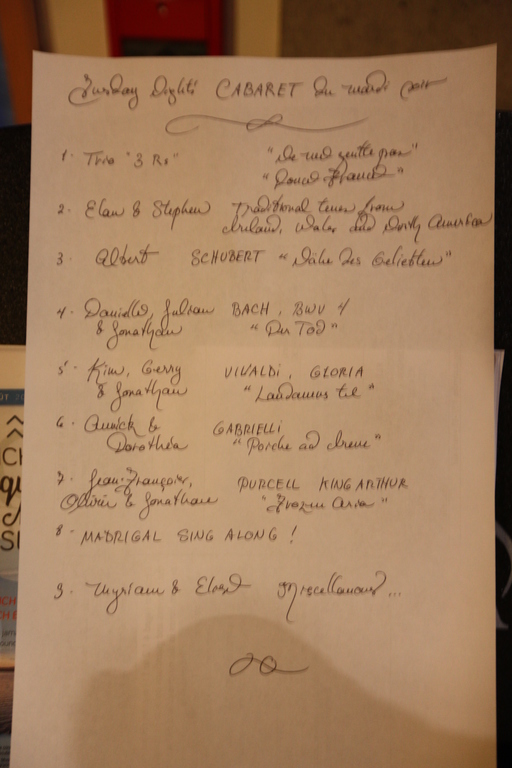 Tuesday Night's CABARET du mardi soir
1. Trio "3 Rs"
"Da
"
2. Elan & Stephen Traditional tunes from
Ireland, Wales and North America
3. Albert SCHUBERT "Nähe des Geliebten"
4. Danielle, Julian BACH, BWV 4
& Jonathan "Der Tod"
5. Kim, Gerry VIVALDI, GLORIA
& Jonathan "Laudamus te"
6. Annick & GABRIELLI
Dorothéa "Porche ad
7. Jean-François, PURCELL KING ARTHUR
Olivier & Jonathan "Frozen aria"
8. MADRIGAL SING ALONG!
9. Myriam & Miscellaneous...